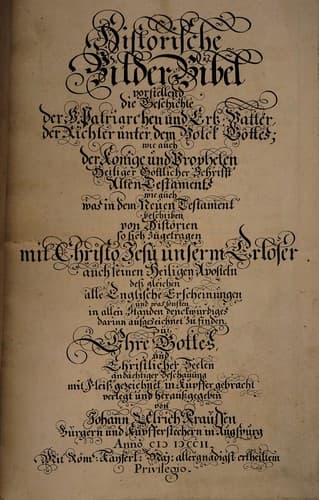 Historische
Bilder Bibel
vorstellend
die Geschichte
der H. Patriarchen und Ertz-Vätter
der Richter unter dem Volck Gottes;
wie auch
der Könige und Propheten
Heiliger Göttlicher Schrifft
Alten Testaments
wie auch
was in dem Neuen Testament
beschriben
von Historien
so sich zugetragen
mit Christo Jesu unserm Erlöser
auch seinen Heiligen Aposteln
deß gleichen
alle Englische Erscheinungen
und was sonsten
in allen Ständen denckwürdiges
darinn aufgezeichnet zu finden
zu
Ehre Gottes
und
Christlicher Seelen
andächtiger Beschauung
mit Fleiß gezeichnet in Kupffer gebracht
verlegt und herausgegeben
von
Johann Ulrich Kraussen
Burgern und Kupfferstechern in Augspurg
Anno CIƆ IƆCCII.
Mit Röm. Kayserl. May: allergnädigst ertheiltem
Privilegio.